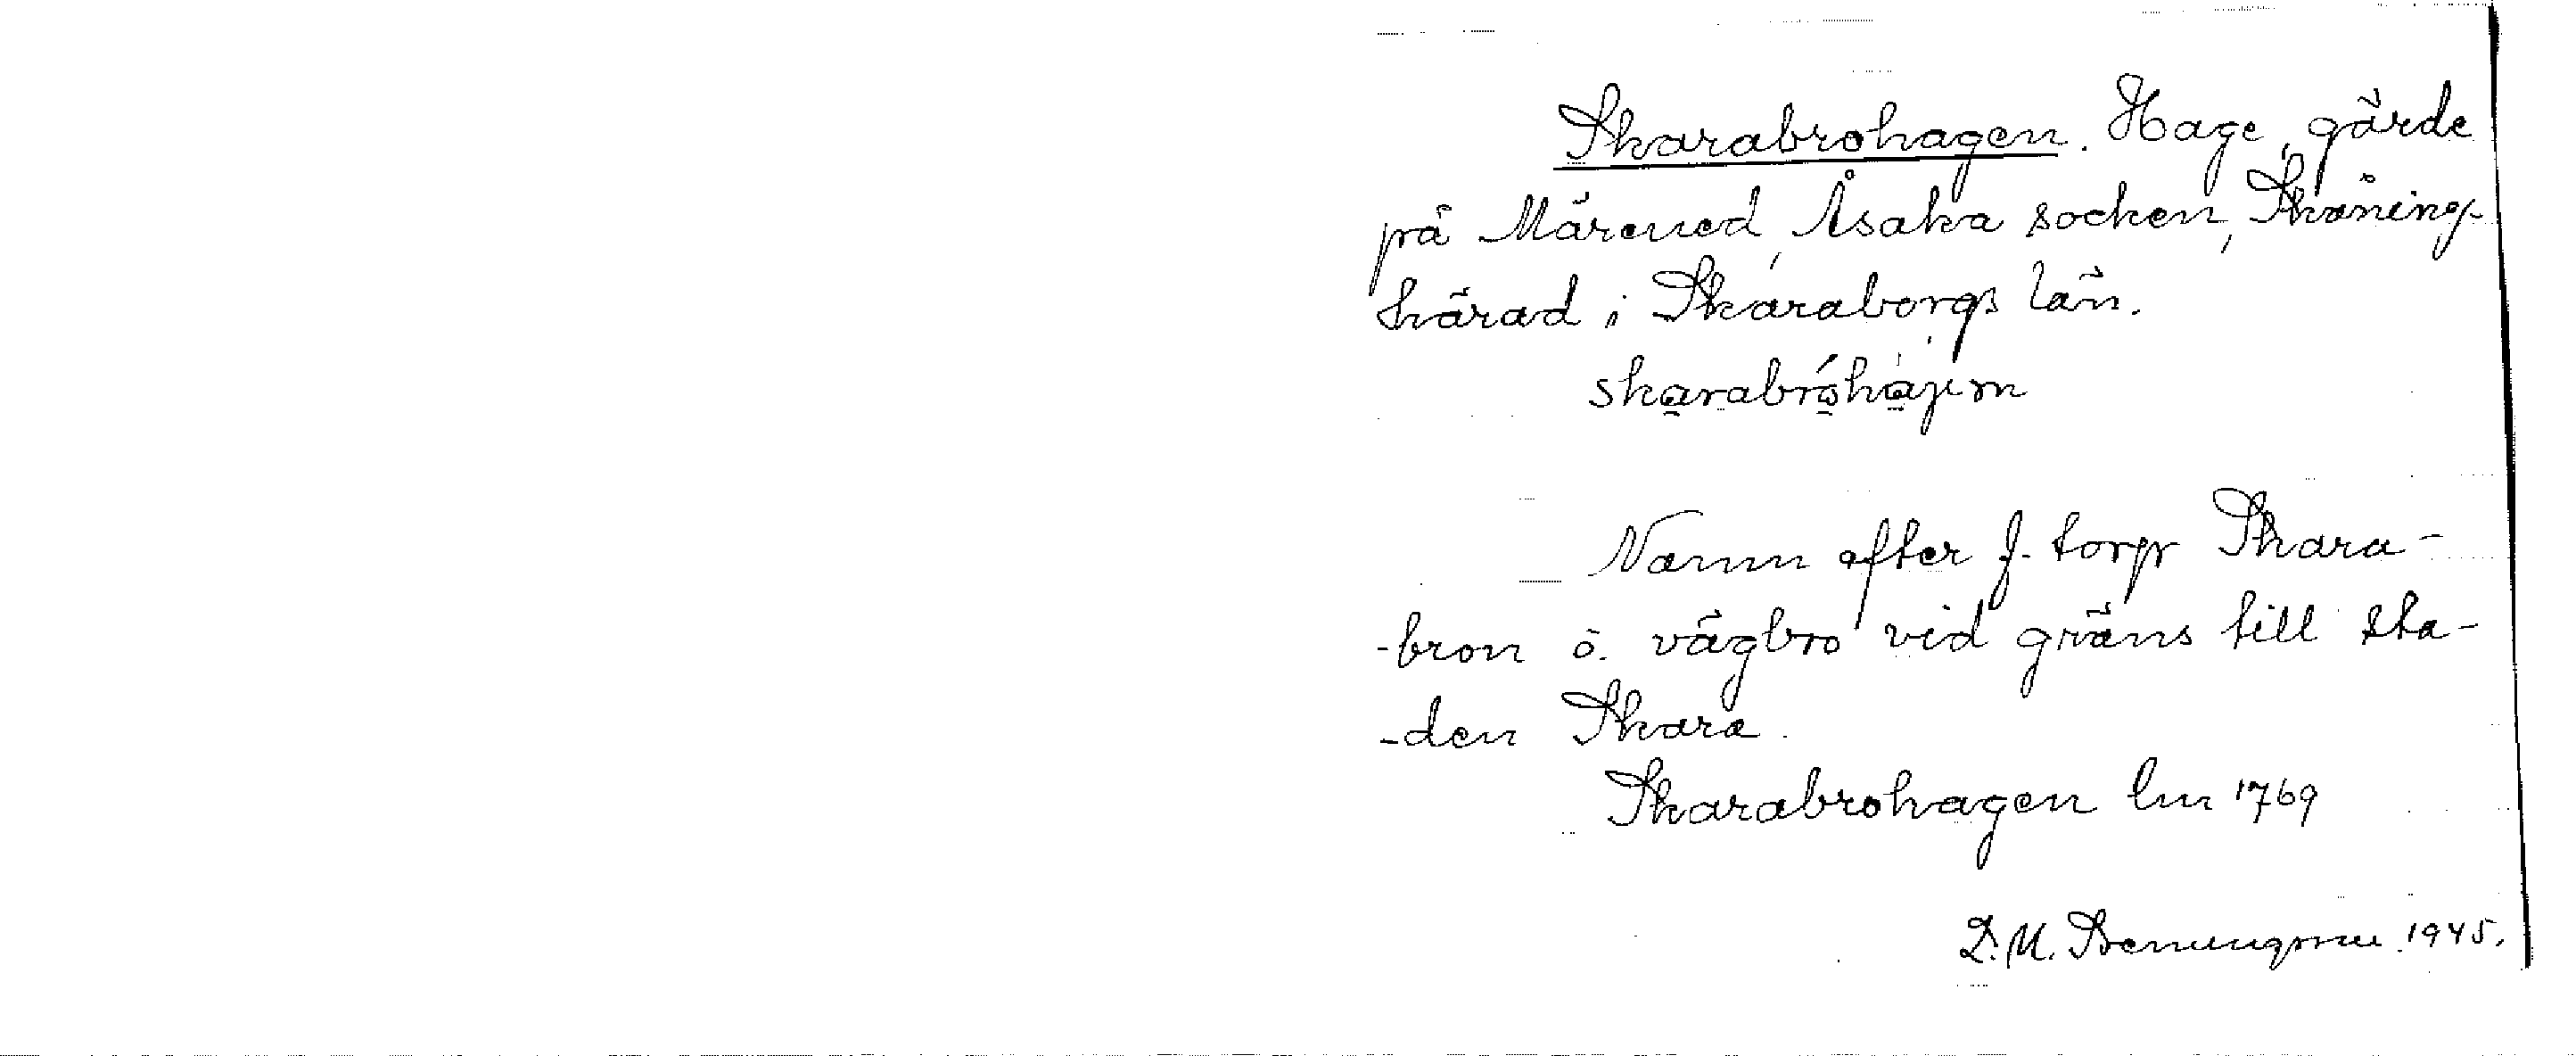 Skarabrohagen. Hage, gärde
på Märened, Åsaka socken, Skånings
härad i Skaraborgs län.
skarabrohajen
Namn efter f. torp Skara-
-bron o. vägbro vid gräns till sta-
-den Skara.
Skarabrohagen lm 1769
1945.